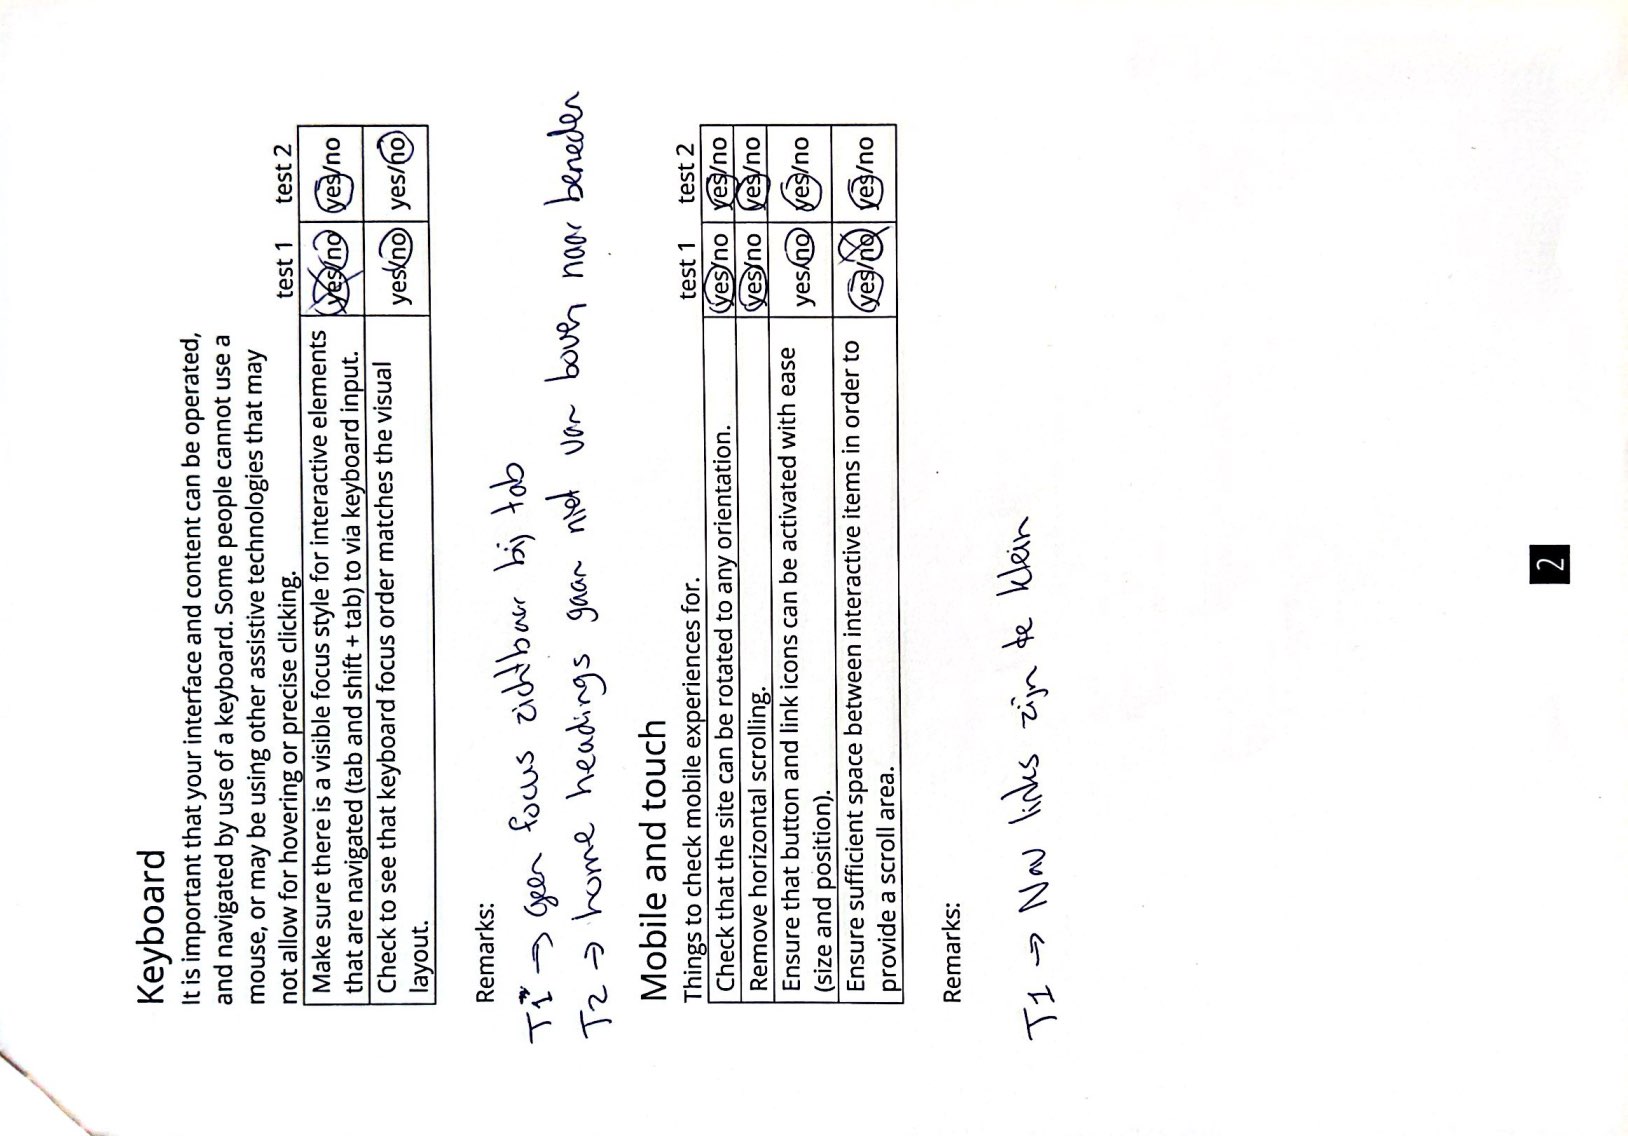 Keyboard
It is important that your interface and content can be operated,
and navigated by use of a keyboard. Some people cannot use a
mouse, or may be using other assistive technologies that may
not allow for hovering or precise clicking. test 1 test 2
Make sure there is a visible focus style for interactive elements yes/no yes/no
that are navigated (tab and shift + tab) to via keyboard input.
Check to see that keyboard focus order matches the visual yes/no yes/no
layout.
Remarks:
T1 → geen focus zichtbaar bij tab
T2 → home headings gaan niet van boven naar beneden
Mobile and touch
Things to check mobile experiences for. test 1 test 2
Check that the site can be rotated to any orientation. yes/no yes/no
Remove horizontal scrolling. yes/no yes/no
Ensure that button and link icons can be activated with ease yes/no yes/no
(size and position).
Ensure sufficient space between interactive items in order to yes/no yes/no
provide a scroll area.
Remarks:
T1 → Nav links zijn te klein
2